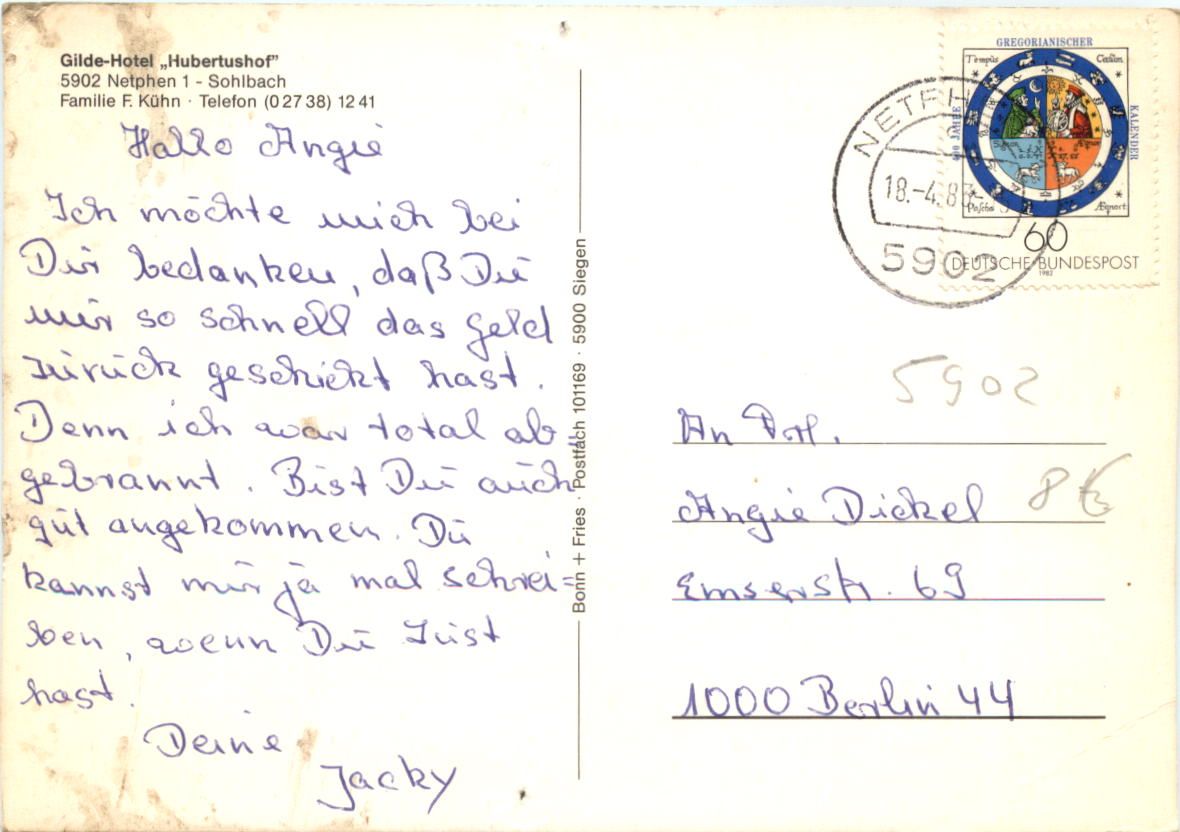 Gilde-Hotel „Hubertushof"
5902 Netphen 1 - Sohlbach
Familie F. Kühn · Telefon (0 27 38) 12 41
Hallo Angie
Ich möchte mich bei
Dir bedanken, daß Du
mir so schnell das Geld
zurück geschickt hast.
Denn ich war total ab
gebrannt. Bist Du auch
gut angekommen. Du
kannst mir ja mal schrei=
ben, wenn Du Lust
hast.
Deine
Jacky
Bonn + Fries · Postfach 101169 · 5900 Siegen
GREGORIANISCHER
KALENDER
JAHRE
Tempus
60
DEUTSCHE BUNDESPOST
1982
NETPH
18.-4.83
5902
5902
An Frl.
Angie Dickel
8 €
Emserstr. 69
1000 Berlin 44